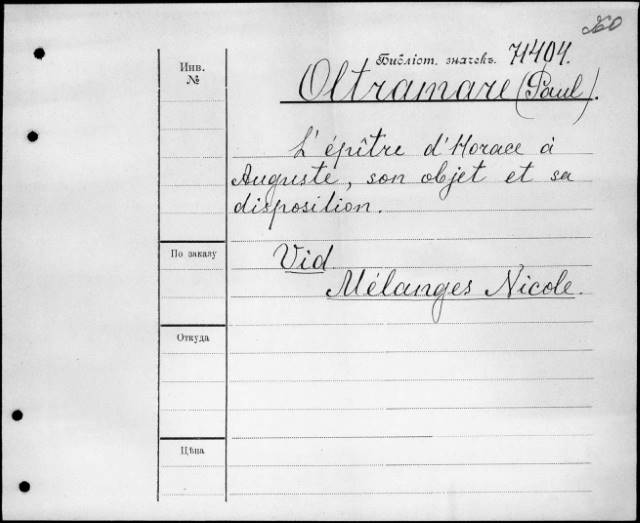 Библіот. значекъ. 71404.
Инв.
№
Oltramare (Paul).
L'épître d'Horace à
Auguste, son objet et sa
disposition.
По заказу
Vid
Mélanges Nicole.
Откуда
Цѣна